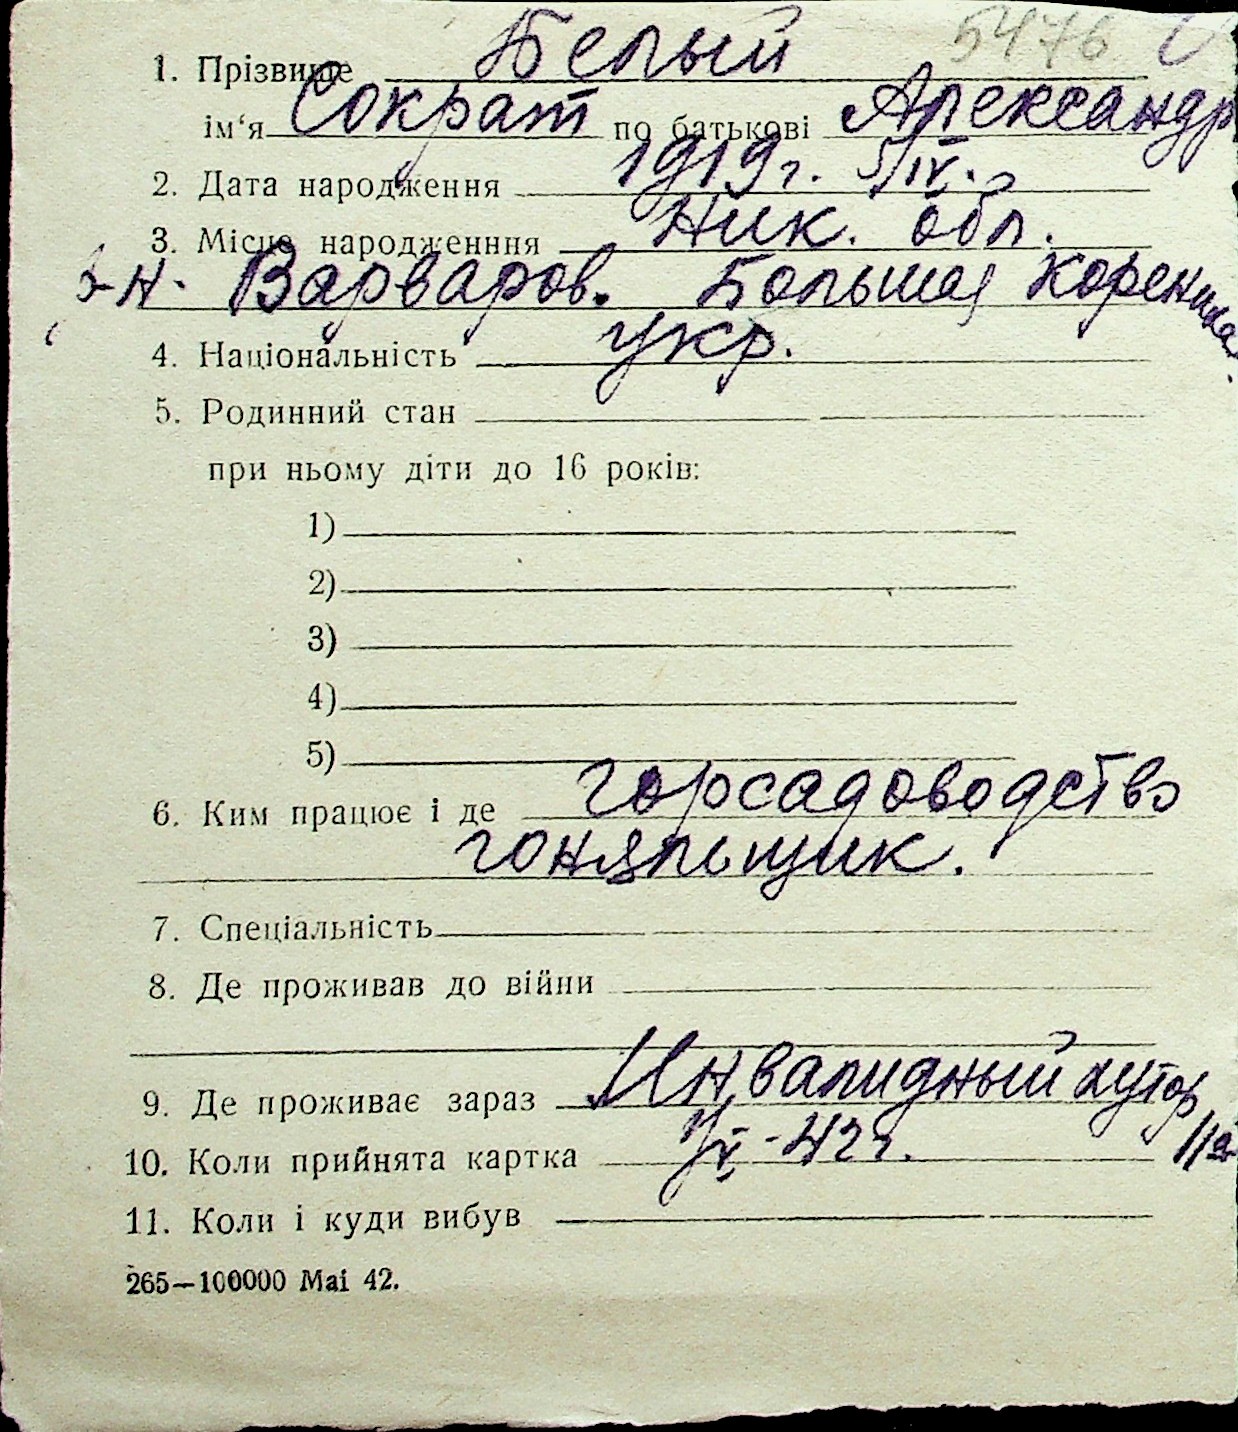 5476
1. Прізвище Белый
ім‘я Сократ по батькові Александр
2. Дата народження 1919 г. 5/IV.
3. Місце народженння Ник. обл.
р-н. Варваров. Большая Корениха.
4. Національність укр.
5. Родинний стан
при ньому діти до 16 років:
1)
2)
3)
4)
5)
6. Ким працює і де горсадоводство
гоняльщик.
7. Спеціальність
8. Де проживав до війни
9. Де проживає зараз Инвалидный хутор
10. Коли прийнята картка 42 г.
11. Коли і куди вибув
265—100000 Mai 42.